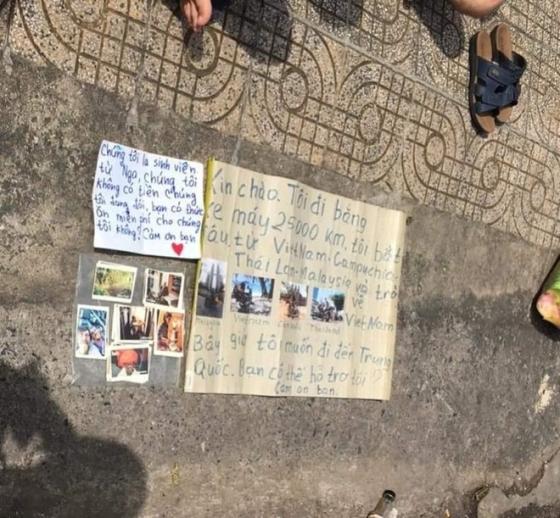 Chúng tôi là sinh viên
từ Nga, chúng tôi
không có tiền chúng
tôi đang đói, bạn có thức
ăn miễn phí cho chúng
tôi không? Cảm ơn bạn
Xin chào. Tôi đi bằng
xe máy 25000 km, tôi bắt
đầu từ VietNam-Campuchia-
Thái Lan-Malaysia và trở
về
Việt Nam
Vietnam
Thailand
Bây giờ tôi muốn đi đến Trung
Quốc. Bạn có thể hỗ trợ tôi
Cảm ơn bạn